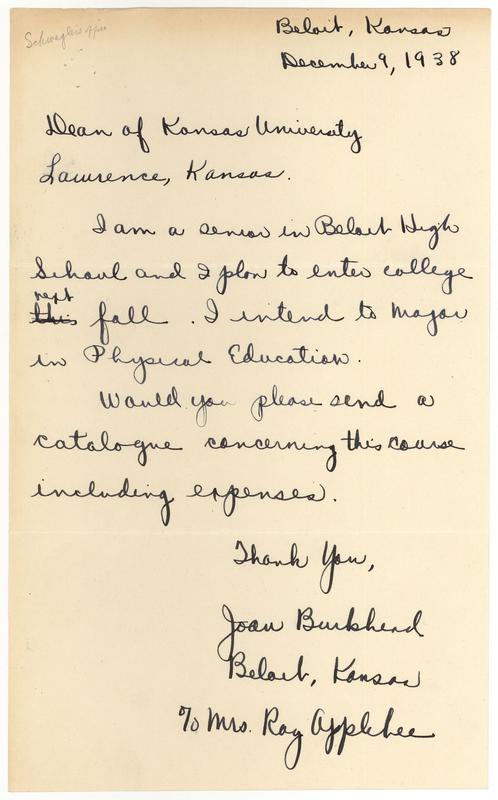 Beloit, Kansas
December 9, 1938
Dean of Kansas University
Lawrence, Kansas.
I am a senior in Beloit High
School and I plan to enter college
next
this fall. I intend to Major
in Physical Education.
Would you please send a
catalogue concerning this course
including expenses.
Thank You,
Joan Burkhead
Beloit, Kansas
% Mrs. Ray Applebee